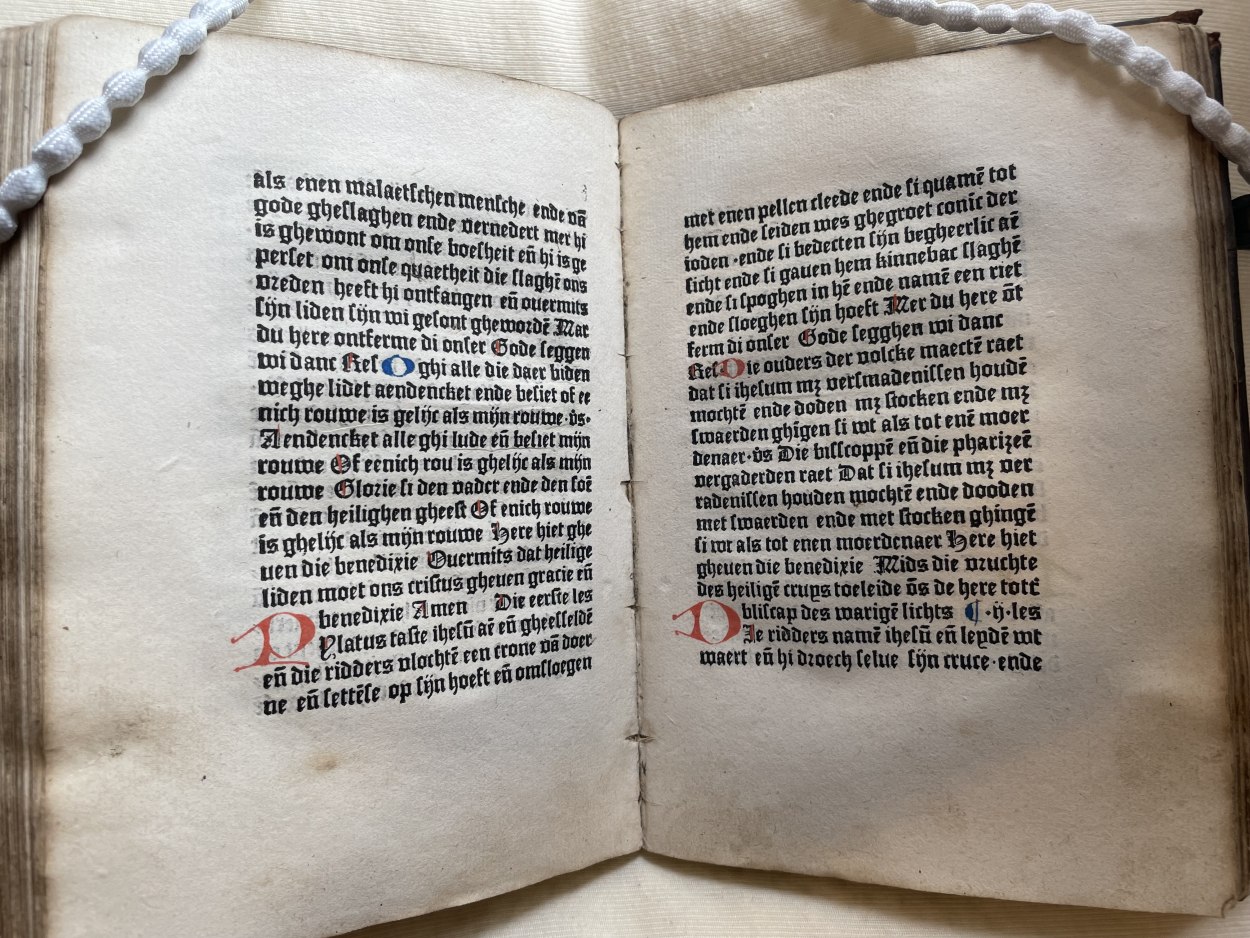 als enen malaetschen mensche ende vā
gode gheslaghen ende vernedert mer hi
is ghewont om onse boesheit eñ hi is ge
perset om onse quaetheit die slaghē ons
vreden heeft hi ontfangen eñ ouermits
sijn liden sijn wi gesont ghewordē Mar
du here ontferme di onser Gode seggen
wi danc Res O ghi alle die daer biden
weghe lidet aendencket ende besiet of ee
nich rouwe is gelijc als mijn rouwe · v̄s ·
Aendencket alle ghi lude eñ besiet mijn
rouwe Of eenich rou is ghelijc als mijn
rouwe Glorie si den vader ende den soē
eñ den heilighen gheest Of enich rouwe
is ghelijc als mijn rouwe Here hiet ghe
uen die benedixie Ouermits dat heilige
liden moet ons cristus gheuen gracie eñ
benedixie Amen Die eerste les
Pylatus taste ihesū aē eñ gheesseldē
eñ die ridders vlochtē een crone vā doer
ne eñ settēse op sijn hoeft eñ omsloegen
met enen pellen cleede ende si quamē tot
hem ende seiden wes ghegroet conic der
ioden · ende si bedecten sijn begheerlic aē
sicht ende si gauen hem kinnebac slaghē
ende si spoghen in hē ende namē een riet
ende sloeghen sijn hoeft Mer du here ōt
ferm di onser Gode segghen wi danc
Res Die ouders der volcke maectē raet
dat si ihesum mȝ versmadenissen houdē
mochtē ende doden mȝ stocken ende mȝ
swaerden ghīgen si wt als tot enē moer
denaer · v̄s Die bisscoppē eñ die pharizeē
vergaderden raet Dat si ihesum mȝ ver
radenissen houden mochtē ende dooden
met swaerden ende met stocken ghingē
si wt als tot enen moerdenaer Here hiet
gheuen die benedixie Mids die vruchte
des heiligē cruys toeleide ōs de here tott
bliscap des warigē lichts ¶ · ij · les
Die ridders namē ihesū eñ leydē wt
waert eñ hi droech selue sijn cruce · ende